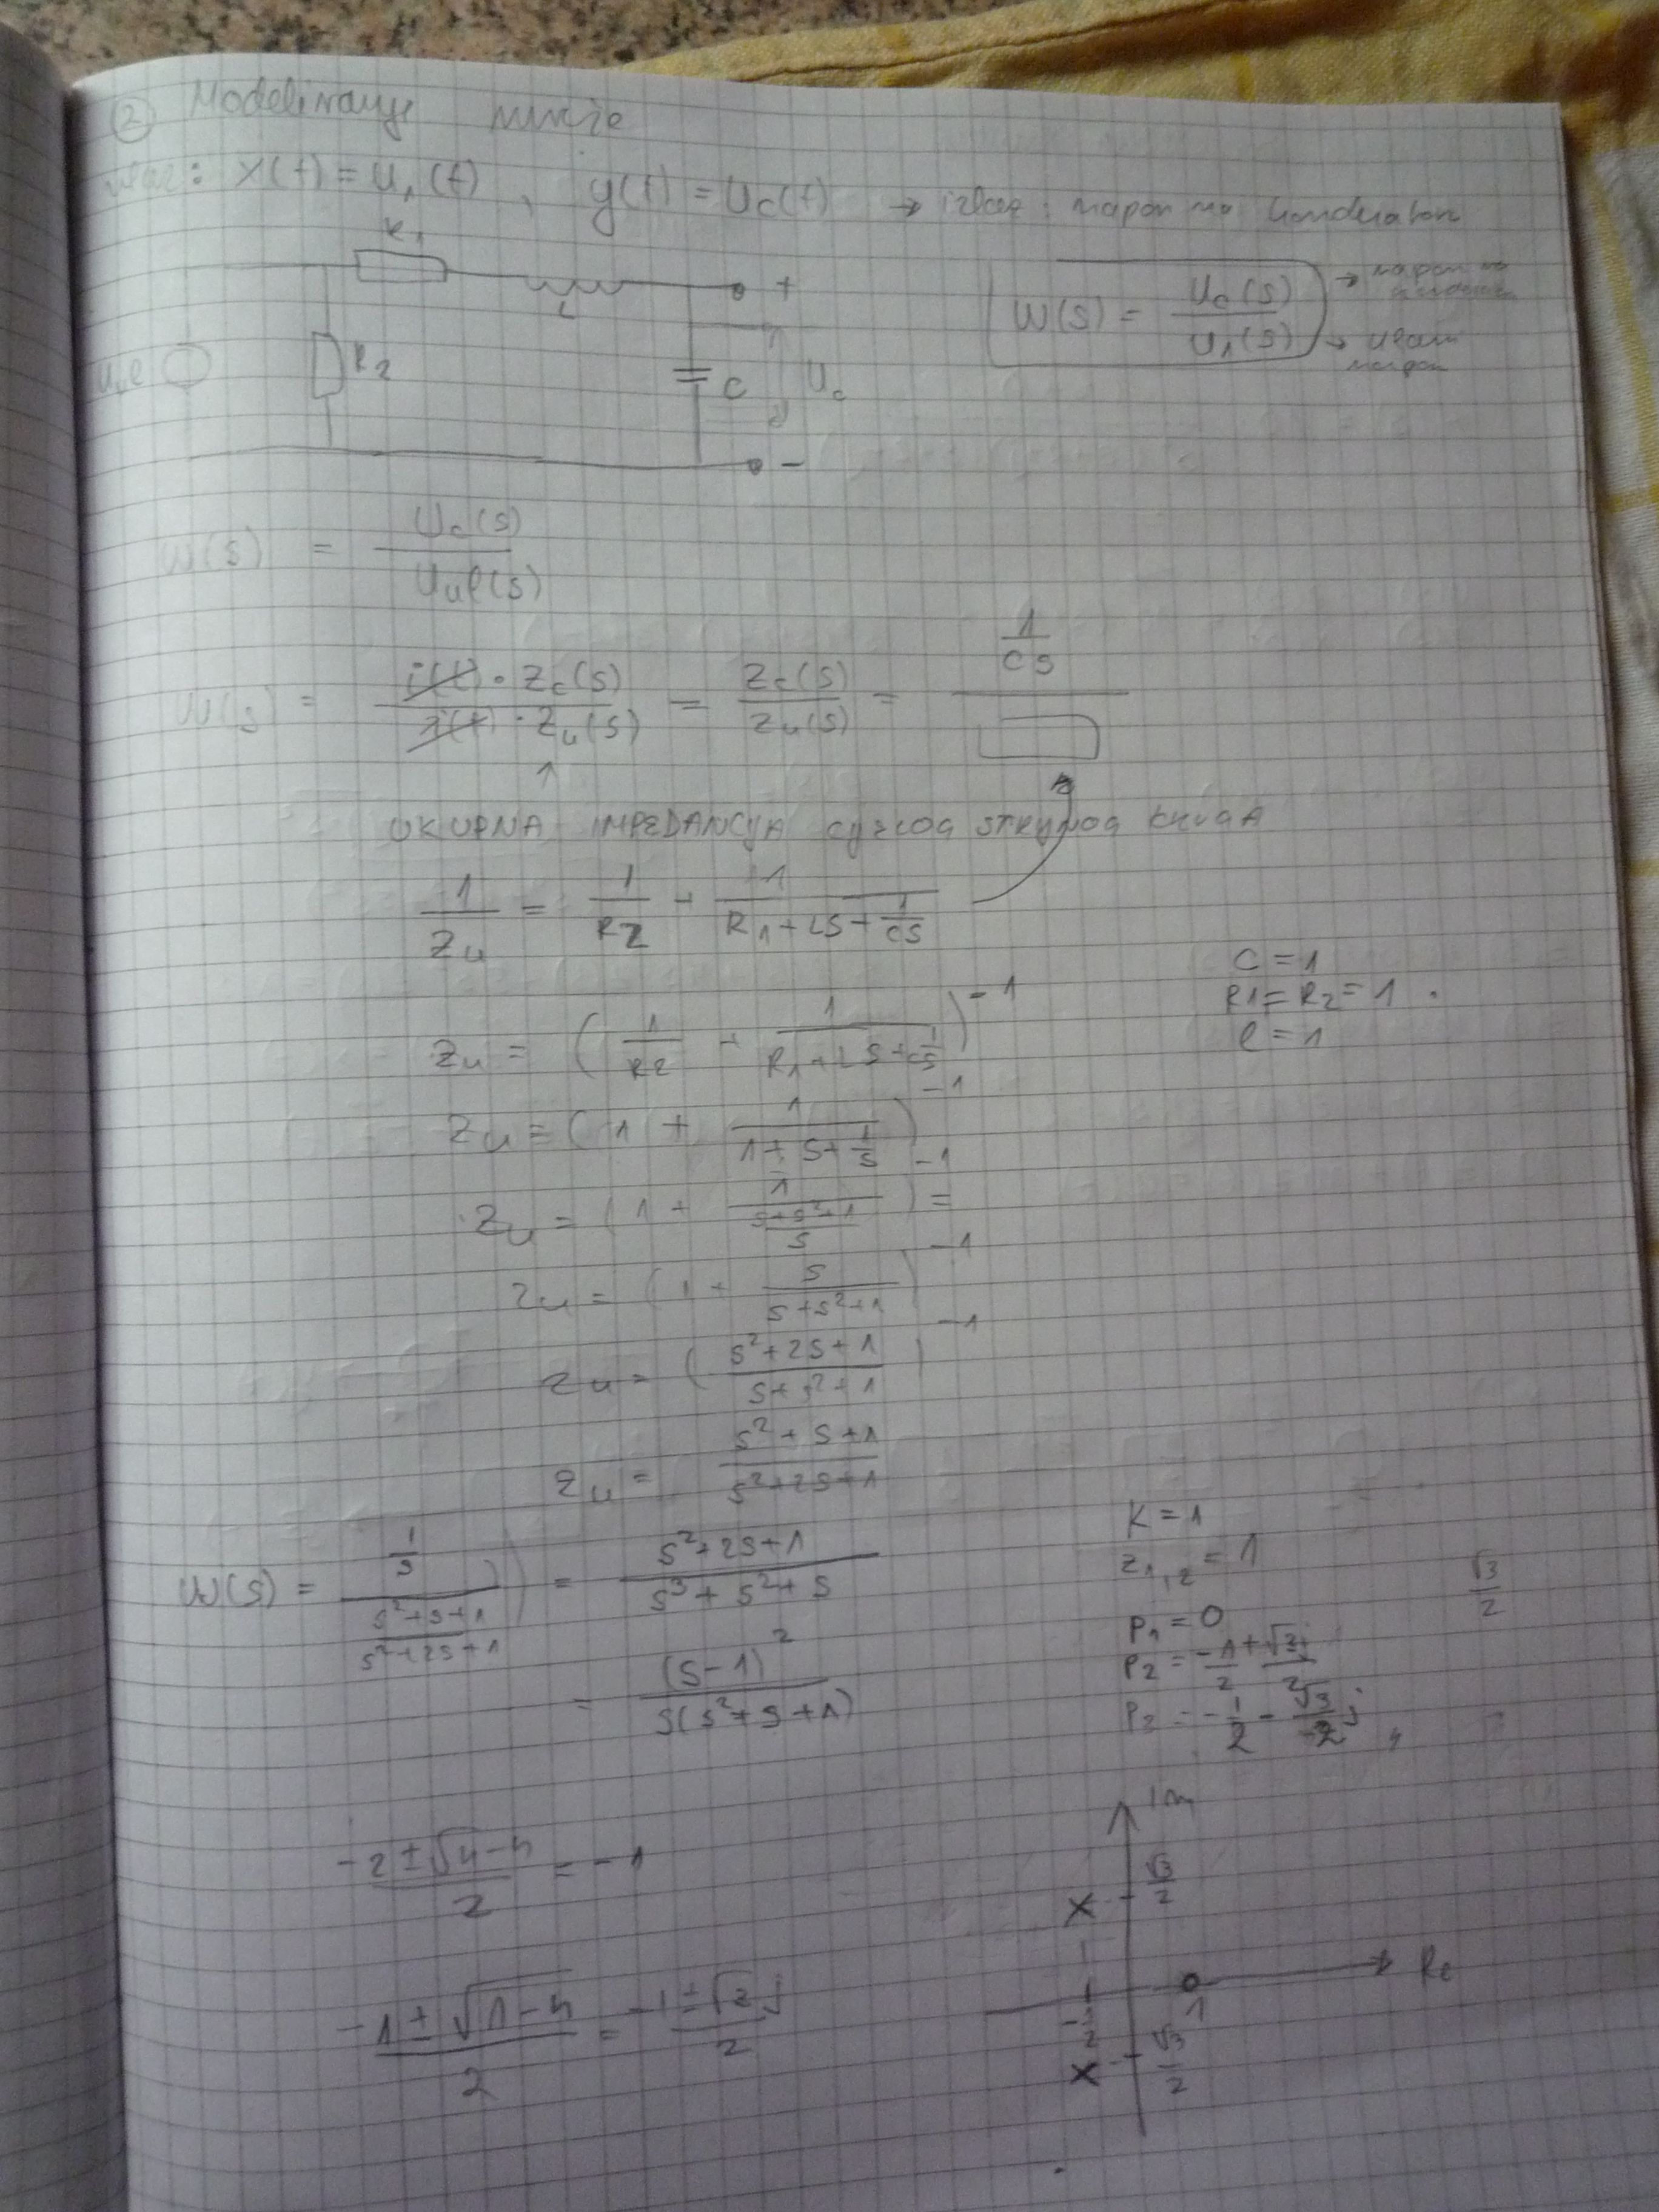 ② Modeliranje mreže
ulaz: x(t) = u₁(t), y(t) = Uc(t) → izlaz: napon na kondenzatoru
R₁
L
+
W(s) = Uc(s) / U₁(s)
→ napon na
→ ulazni napon
Uul
R₂
C
Uc
−
W(s) = Uc(s) / Uul(s)
W(s) = i(t) · Zc(s) / i(t) · Zu(s) = Zc(s) / Zu(s) = 1/Cs
↑
UKUPNA IMPEDANCIJA CIJELOG STRUJNOG KRUGA
1/Zu = 1/R2 + 1/(R1 + LS + 1/CS)
C = 1
R1 = R2 = 1
l = 1
Zu = (1/R2 + 1/(R1 + LS + 1/CS))⁻¹
Zu = (1 + 1/(1 + S + 1/S))⁻¹
Zu = (1 + 1/((S+S²+1)/S))⁻¹ =
Zu = (1 + S/(S+S²+1))⁻¹
Zu = ((S²+2S+1)/(S+S²+1))⁻¹
Zu = (S²+S+1)/(S²+2S+1)
W(s) = (1/S)/((S²+S+1)/(S²+2S+1)) = (S²+2S+1)/(S³+S²+S)
= (S-1)²/(S(S²+S+1))
K = 1
Z₁,₂ = 1
P₁ = 0
P₂ = -1/2 + √3j/2
P₂ = -1/2 - √3/2 j
√3/2
(-2 ± √4-4)/2 = -1
(-1 ± √1-4)/2 = (-1 ± √3 j)/2
Im
√3/2
x
Re
-1/2
1
x
√3/2